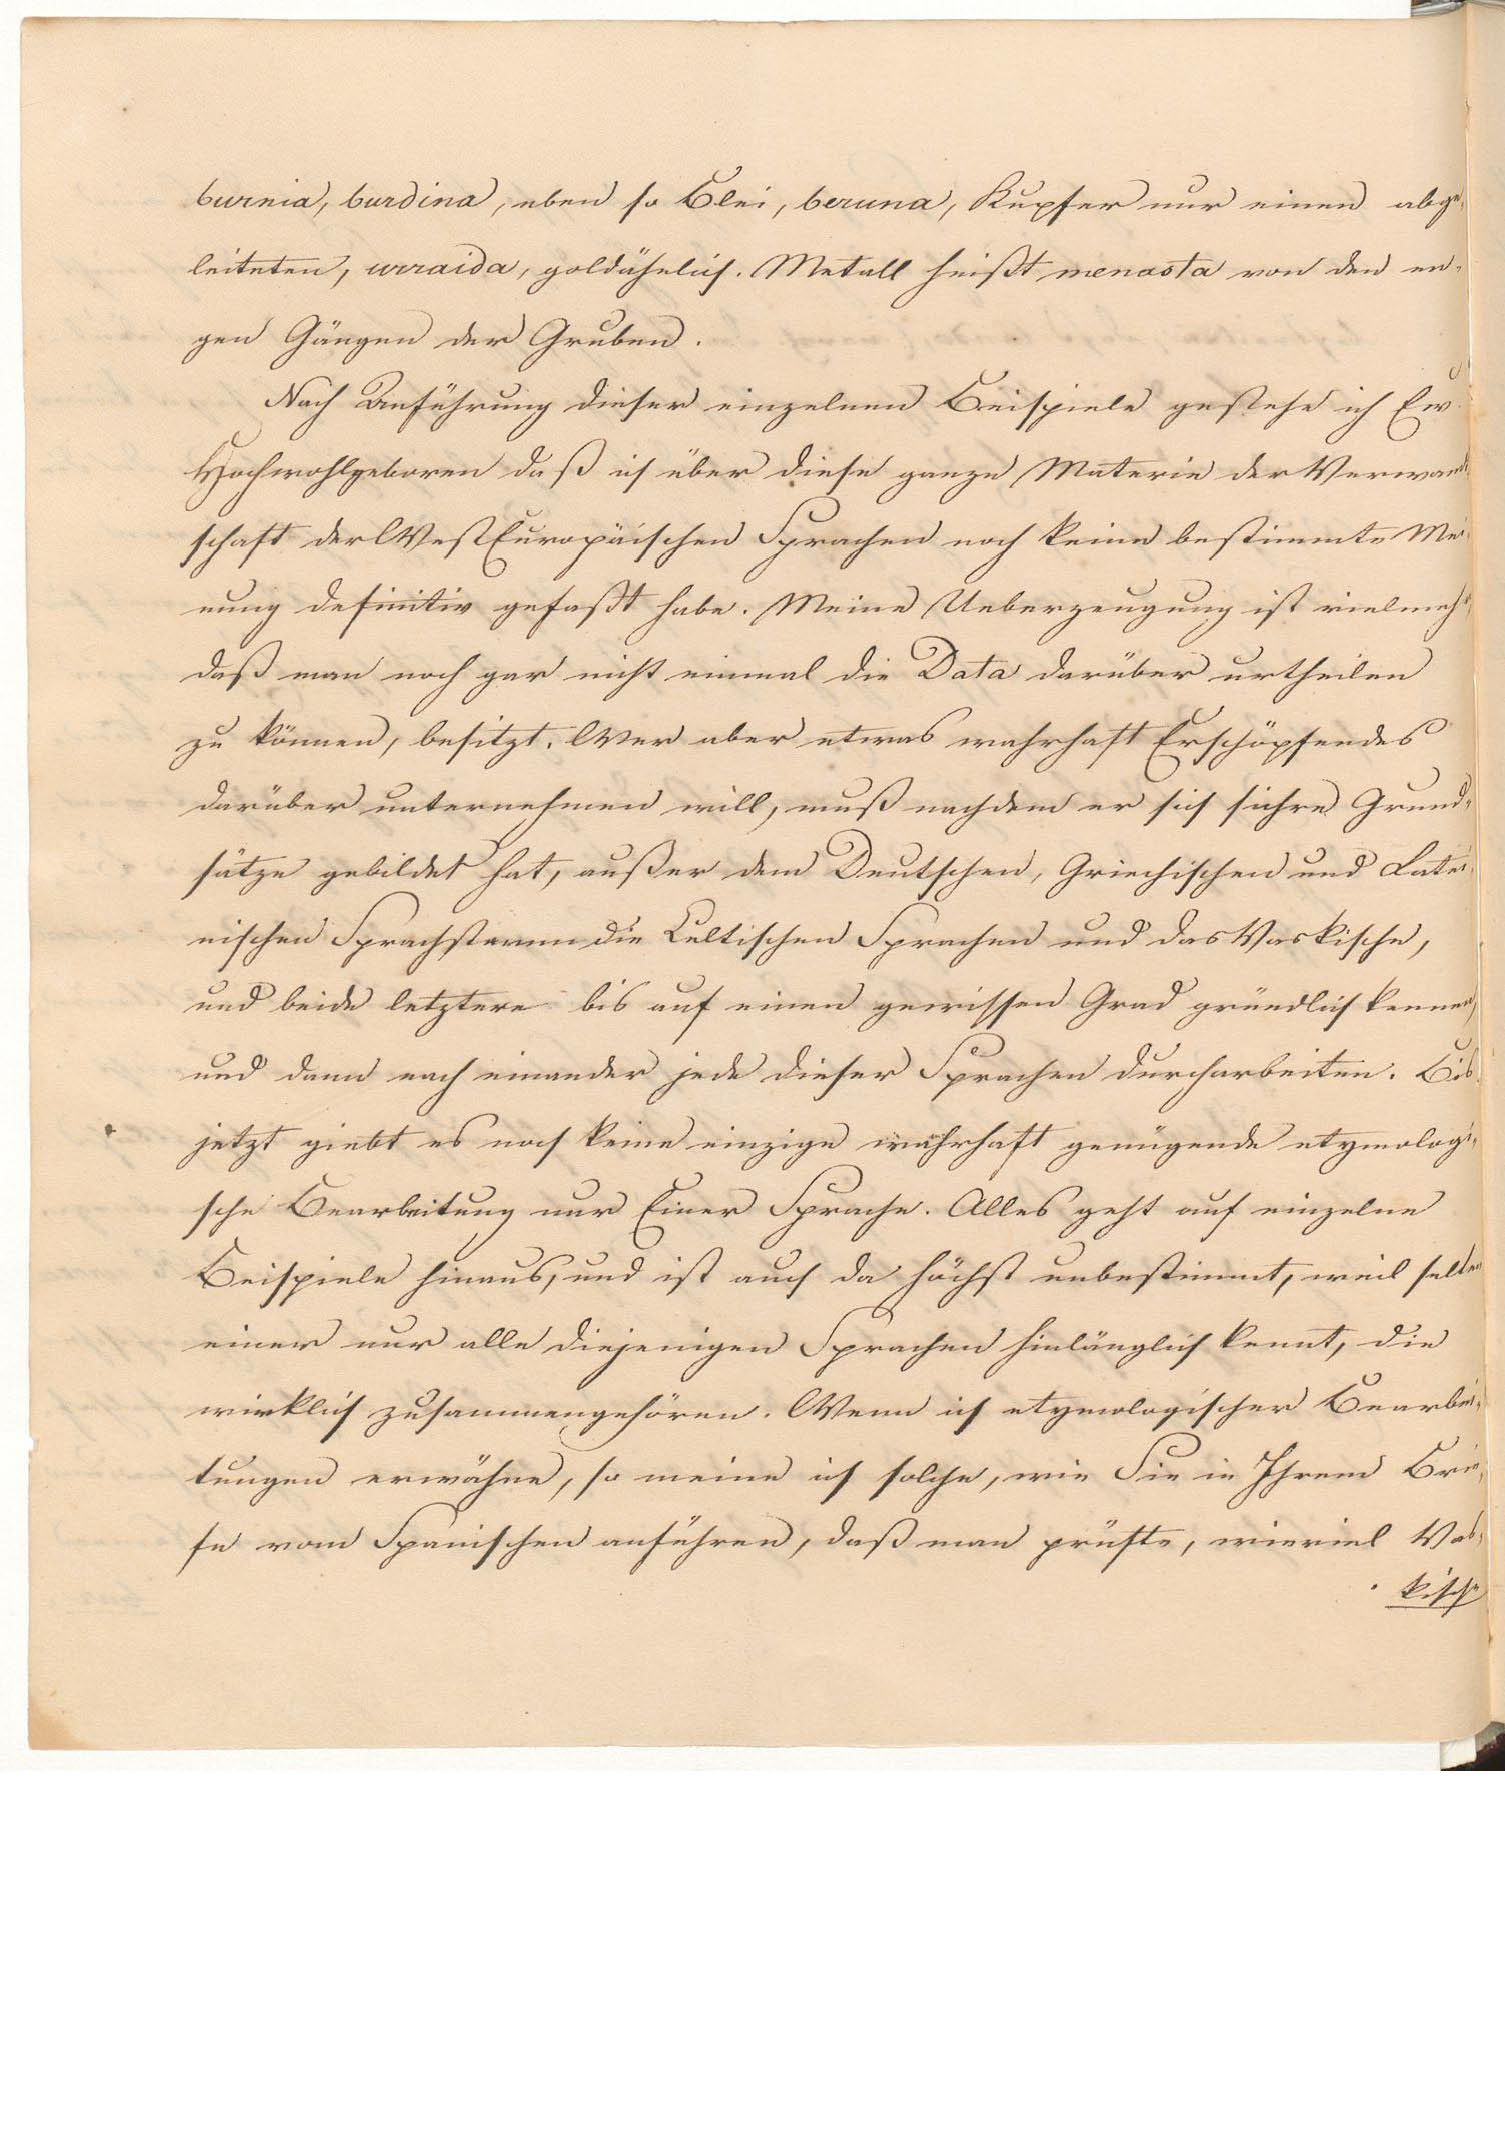 burnia, burdina, eben so Blei, beruna, Kupfer nur einen abge-
leiteten, urraida, goldähnlich. Metall heißt menasta von den en-
gen Gängen der Gruben.
Nach Anführung dieser einzelnen Beispiele gestehe ich Ew.
Hochwohlgeboren daß ich über diese ganze Materie der Verwand-
schaft der WestEuropäischen Sprachen noch keine bestimmte Mei-
nung definitiv gefaßt habe. Meine Ueberzeugung ist vielmehr,
daß man noch gar nicht einmal die Data darüber urtheilen
zu können, besitzt. Wer aber etwas wahrhaft Erschöpfendes
darüber unternehmen will, muß nachdem er sich sichre Grund-
sätze gebildet hat, außer dem Deutschen, Griechischen und Latei-
nischen Sprachstamm die Celtischen Sprachen und das Vaskische,
und beide letztere bis auf einen gewissen Grad gründlich kennen,
und dann nach einander jede dieser Sprachen durcharbeiten. Bis
jetzt giebt es noch keine einzige wahrhaft genügende etymologi-
sche Bearbeitung nur Einer Sprache. Alles geht auf einzelne
Beispiele hinaus, und ist auch da höchst unbestimmt, weil selten
einer nur alle diejenigen Sprachen hinlänglich kennt, die
wirklich zusammengehören. Wenn ich etymologischer Bearbei-
tungen erwähne, so meine ich solche, wie Sie in Ihrem Brie-
fe vom Spanischen anführen, daß man prüfte, wieviel Vas-
kische